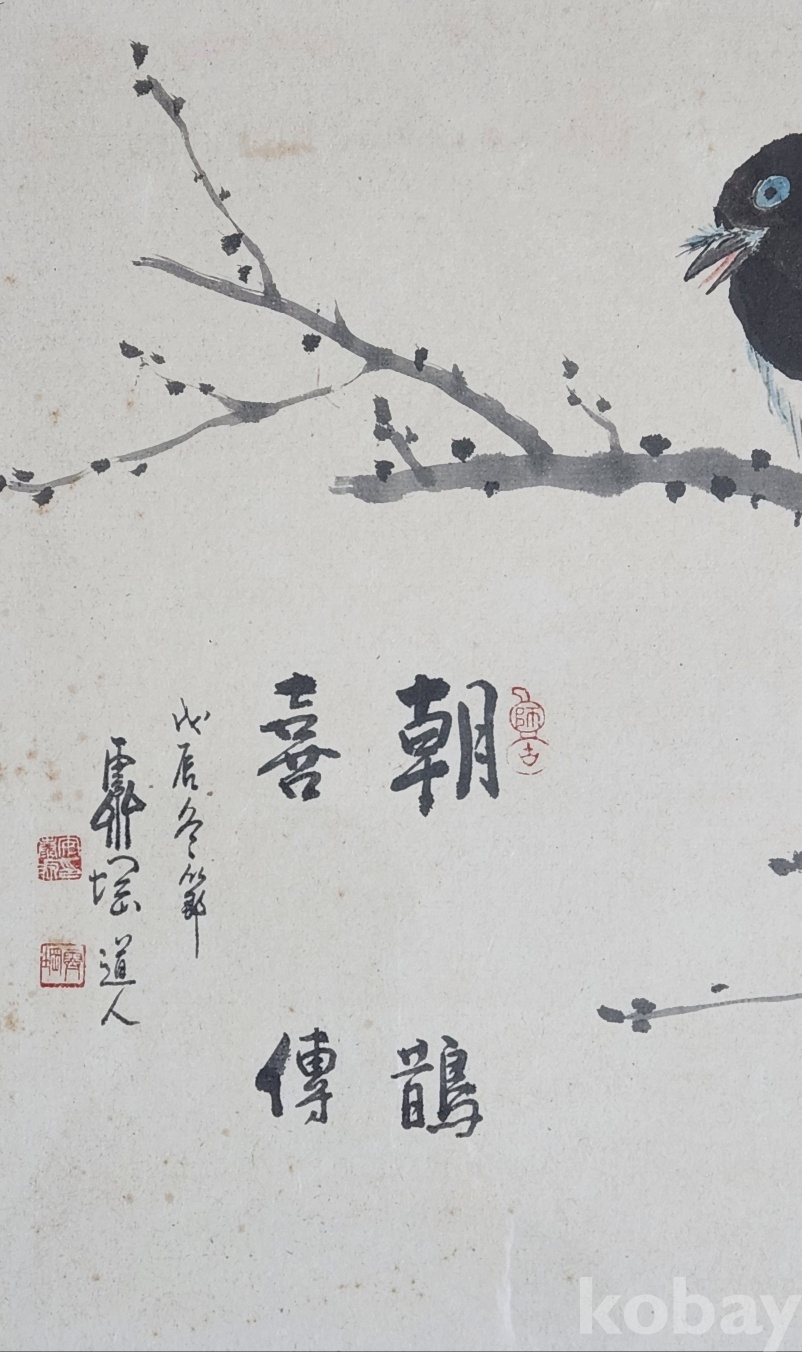 師古
朝鵲
喜傳
戊辰冬節
道人
kobay